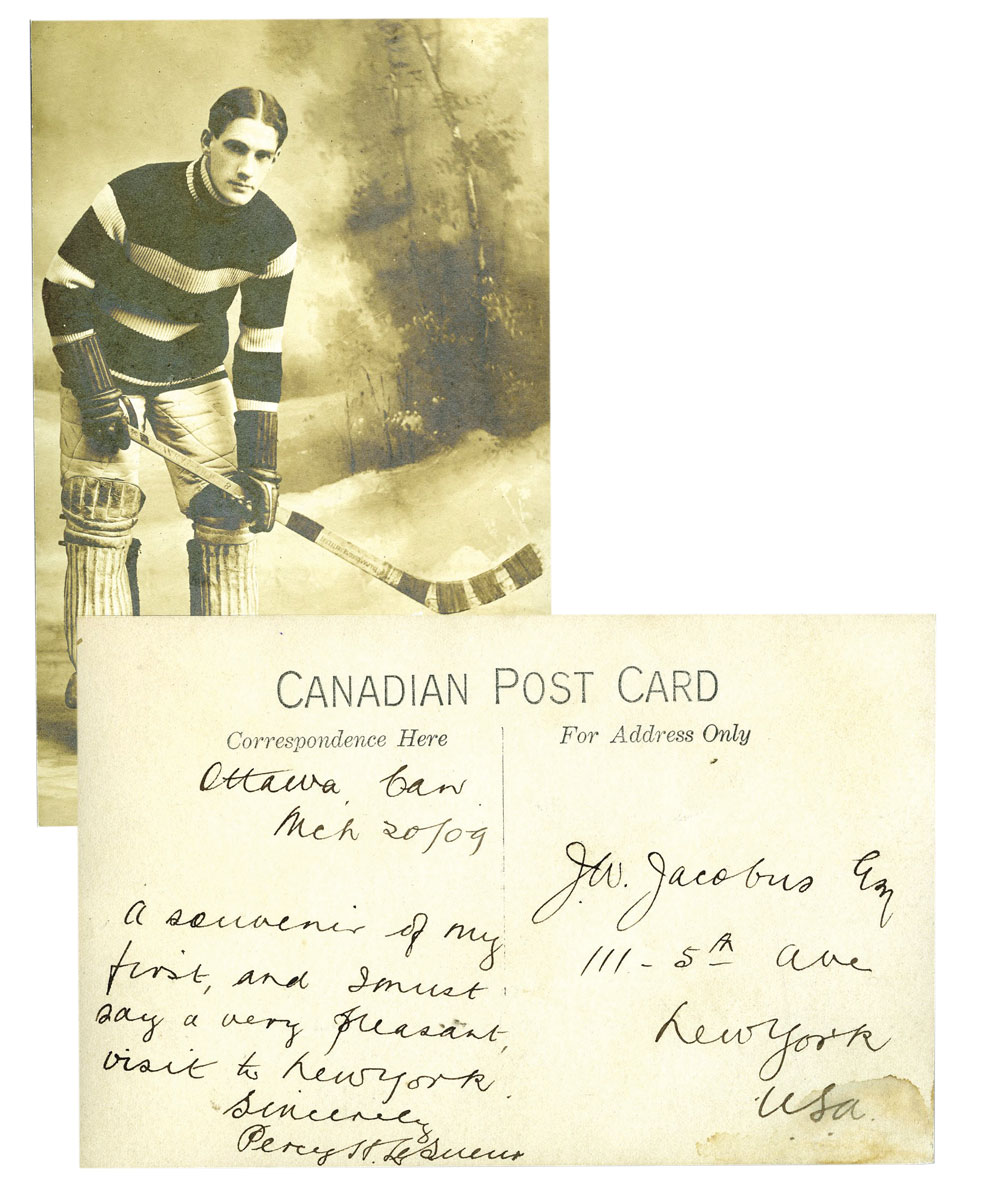 CANADIAN POST CARD
Correspondence Here
For Address Only
Ottawa, Can.
Mch 20/09
A souvenir of my
first, and I must
say a very pleasant,
visit to New York.
Sincerely
Percy H. LeSueur
J.W. Jacobus Esq
111 - 5th Ave
New York
U.S.a.